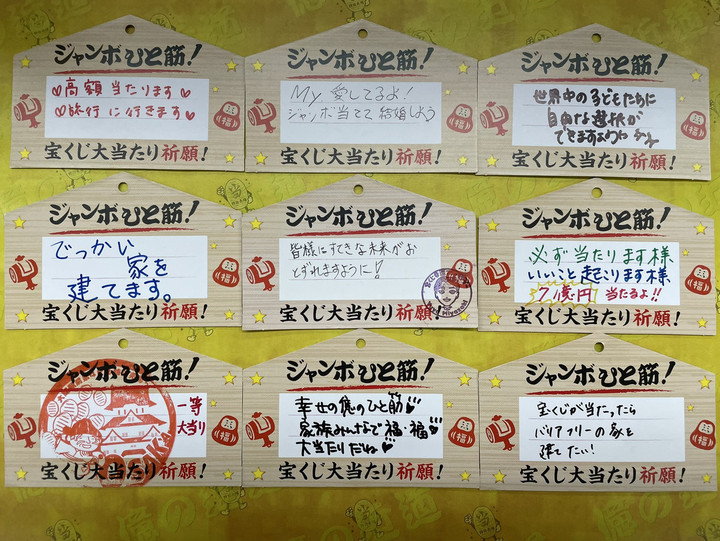 ジャンボひと筋!
♡高額当たります♡
♡旅行に行きます♡
福
宝くじ大当たり祈願!
ジャンボひと筋!
My 愛してるよ!
ジャンボ当てて結婚しよう
福
宝くじ大当たり祈願!
ジャンボひと筋!
世界中の子どもたちに
自由な選択が
できますように
福
宝くじ大当たり祈願!
ジャンボひと筋!
でっかい
家を
建てます。
福
宝くじ大当たり祈願!
ジャンボひと筋!
皆様にすてきな未来がお
とずれますように!!
福
宝くじ大当たり祈願!
ジャンボひと筋!
必ず当たります様
いいこと起こります様
7億円 当たるよ!!
福
宝くじ大当たり祈願!
ジャンボひと筋!
一等
大当り
福
宝くじ大当たり祈願!
ジャンボひと筋!
幸せの億のひと筋
家族みんなで福・福
大当たりだね
福
宝くじ大当たり祈願!
ジャンボひと筋!
宝くじが当たったら
バリアフリーの家を
建てたい!
福
宝くじ大当たり祈願!